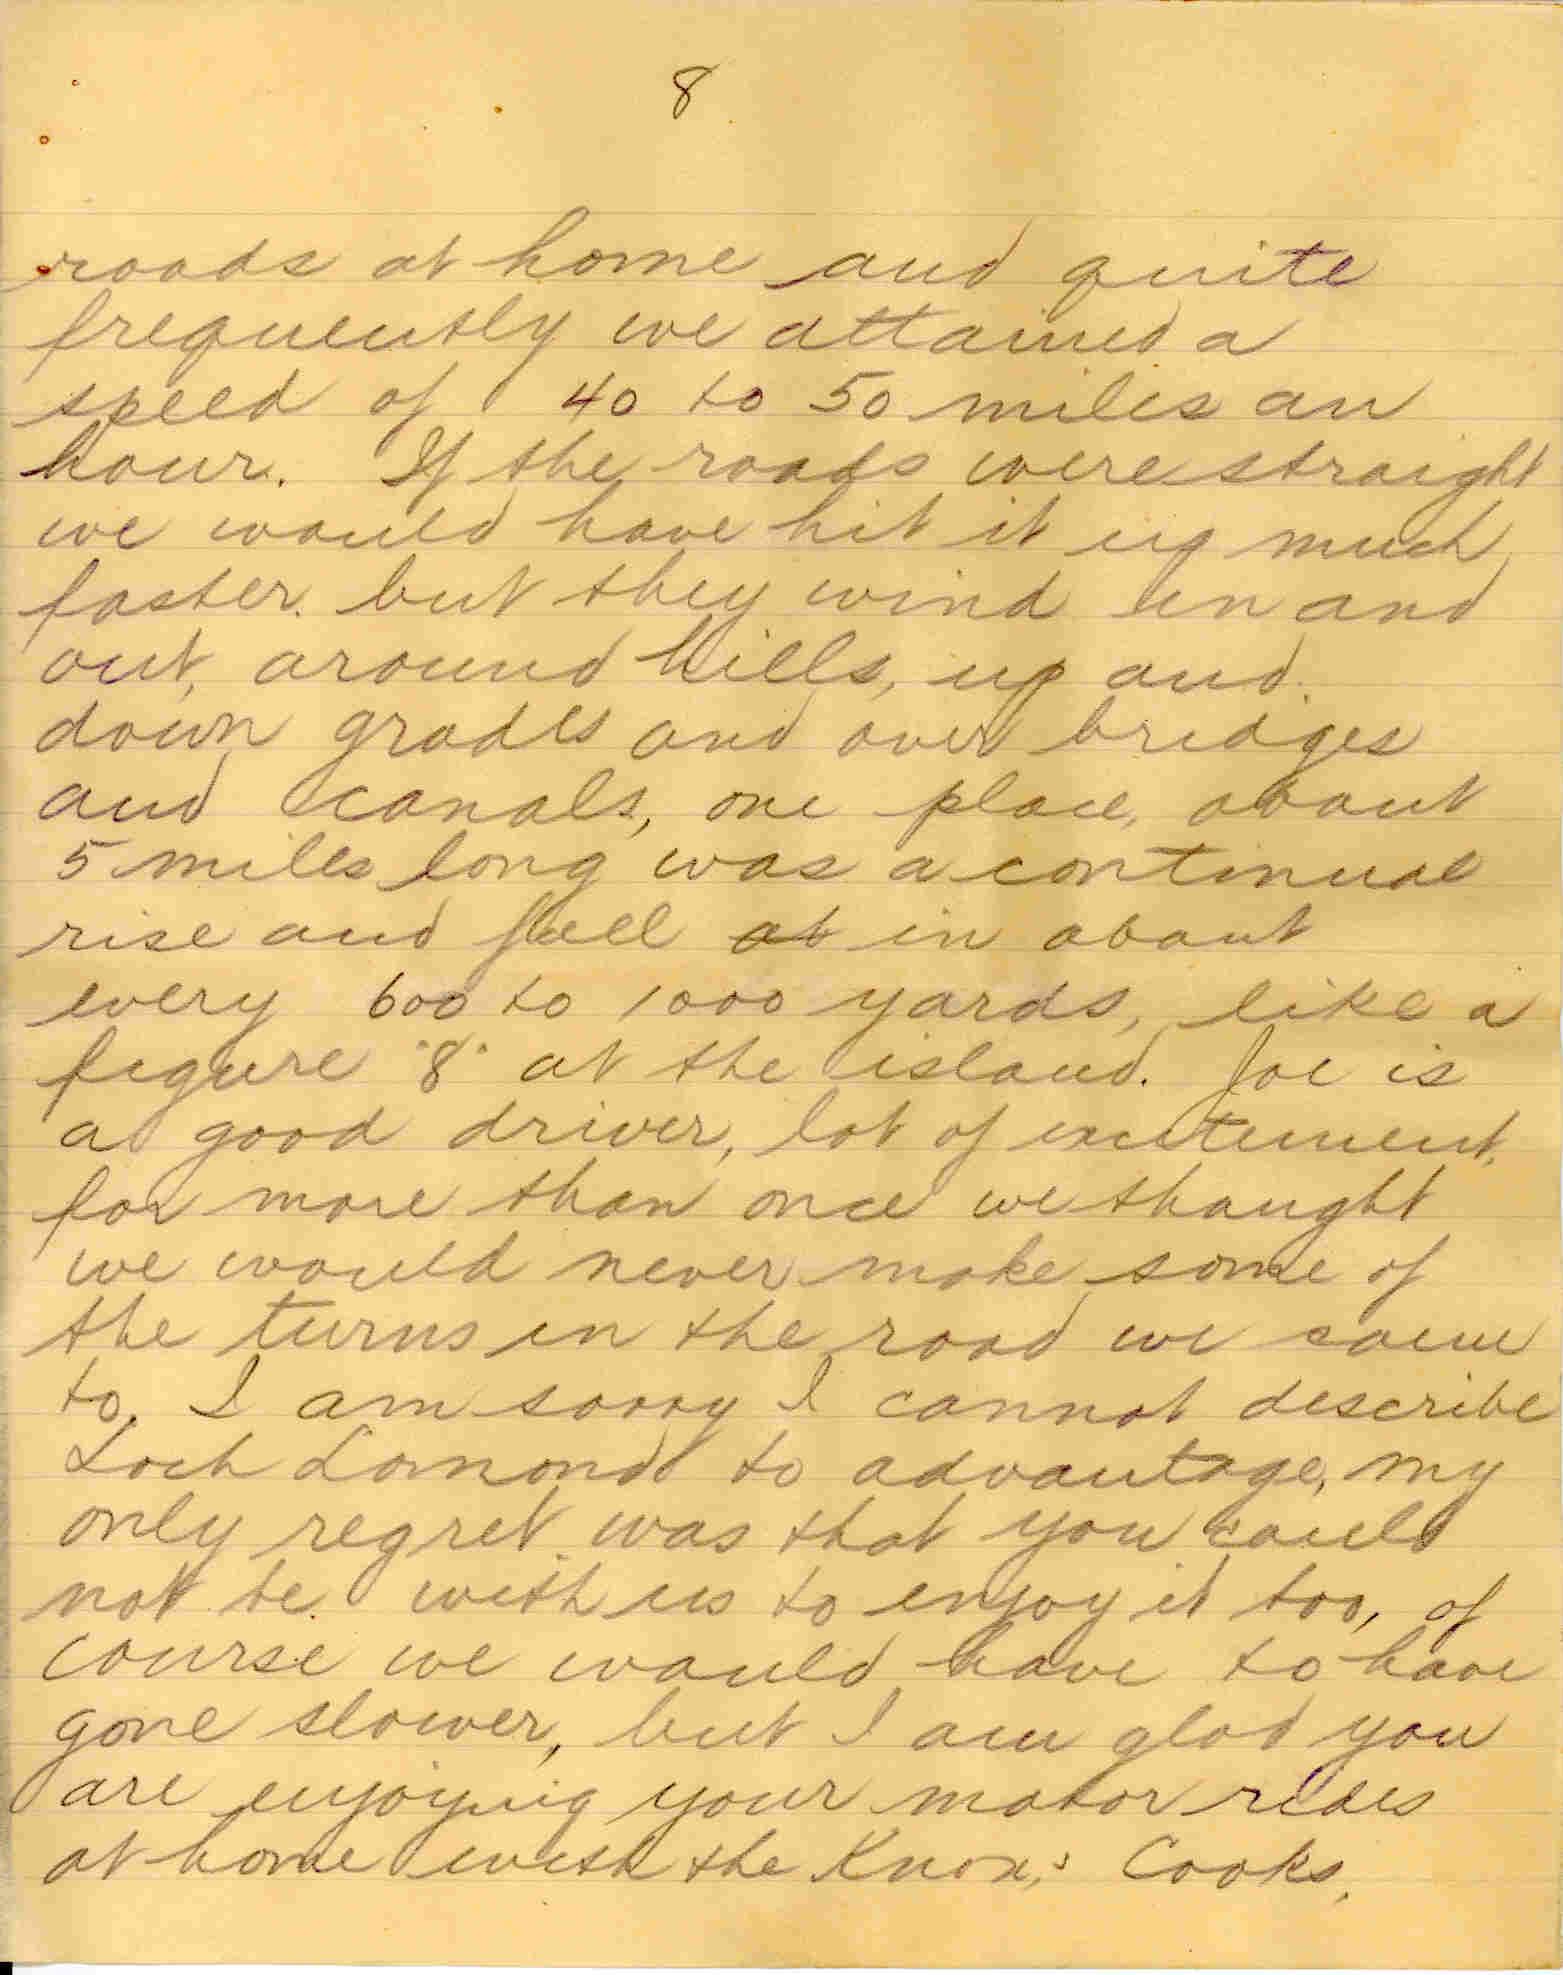 8
roads at home and quite
frequently we attained a
speed of 40 to 50 miles an
hour. If the roads were straight
we would have hit it up much
faster. but they wind in and
out, around hills, up and
down grades and over bridges
and canals, one place, about
5 miles long was a continual
rise and fall at in about
every 600 to 1000 yards, like a
figure "8" at the island. Joe is
a good driver, lot of excitement,
for more than once we thought
we would never make some of
the turns in the road we came
to. I am sorry I cannot describe
Loch Lomond to advantage, my
only regret was that you could
not be with us to enjoy it too, of
course we would have to have
gone slower, but I am glad you
are enjoying your motor rides
at home with the Knox,s Cooks,